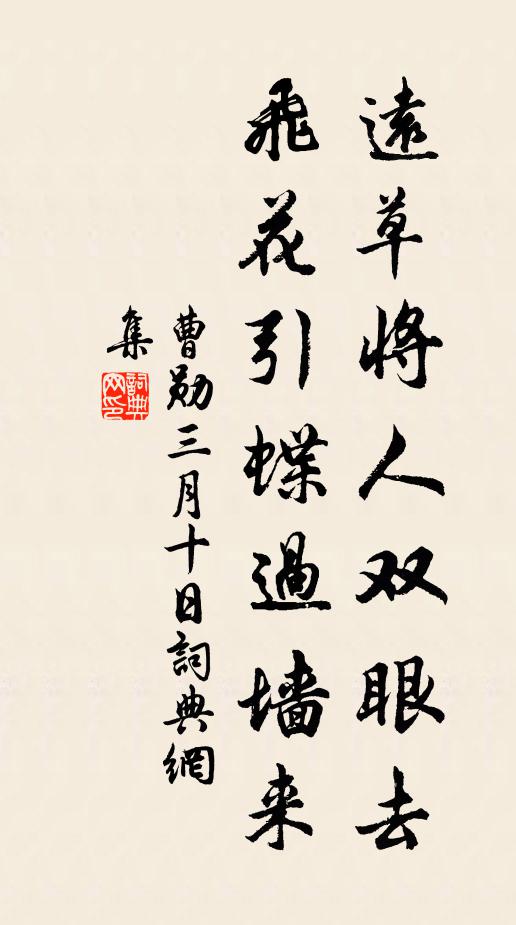 遠草將人双眼去
飛花引蝶過墙来
曹勛三月十日詞典網
集
詞典网印